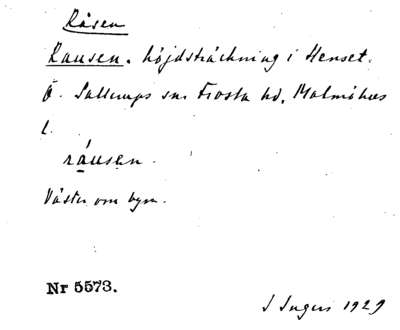 Råsen
Rausen. höjdsträckning i Henset.
Ö. Sallerups sn Frosta hd, Malmöhus
l.
ráusen.
Väster om byn.
Nr 5573.
I Ingers 1929